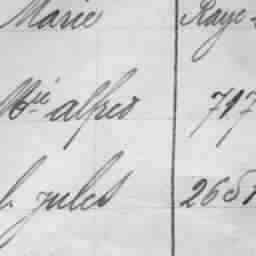 Marie Raye
Mie alfred 717
jules 2651